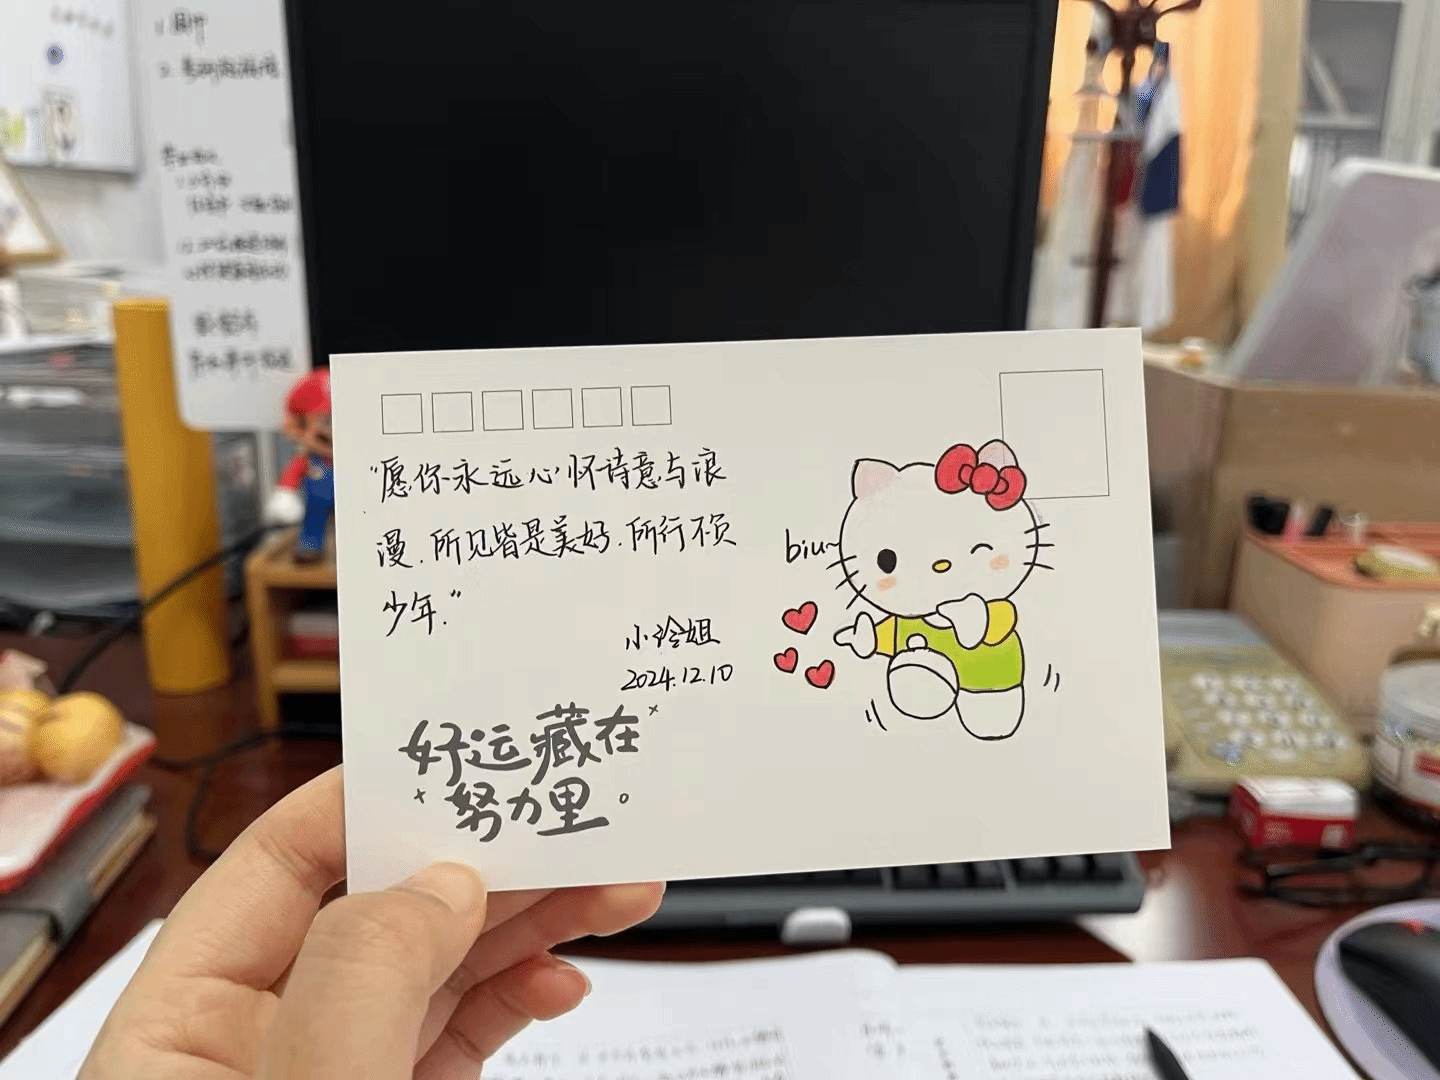 “愿你永远心怀诗意与浪
漫.所见皆是美好.所行不负
少年.”
小玲姐
2024.12.10
好运藏在
努力里。
biu~